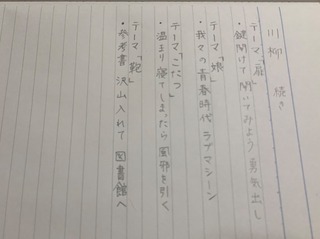 川柳 続き
テーマ「扉」
・鍵開けて 開いてみよう 勇気出し
テーマ「娘」
・我々の 青春時代 ラブマシーン
テーマ「こたつ」
・温まり 寝てしまったら 風邪を引く
テーマ「鞄」
・参考書 沢山入れて 図書館へ